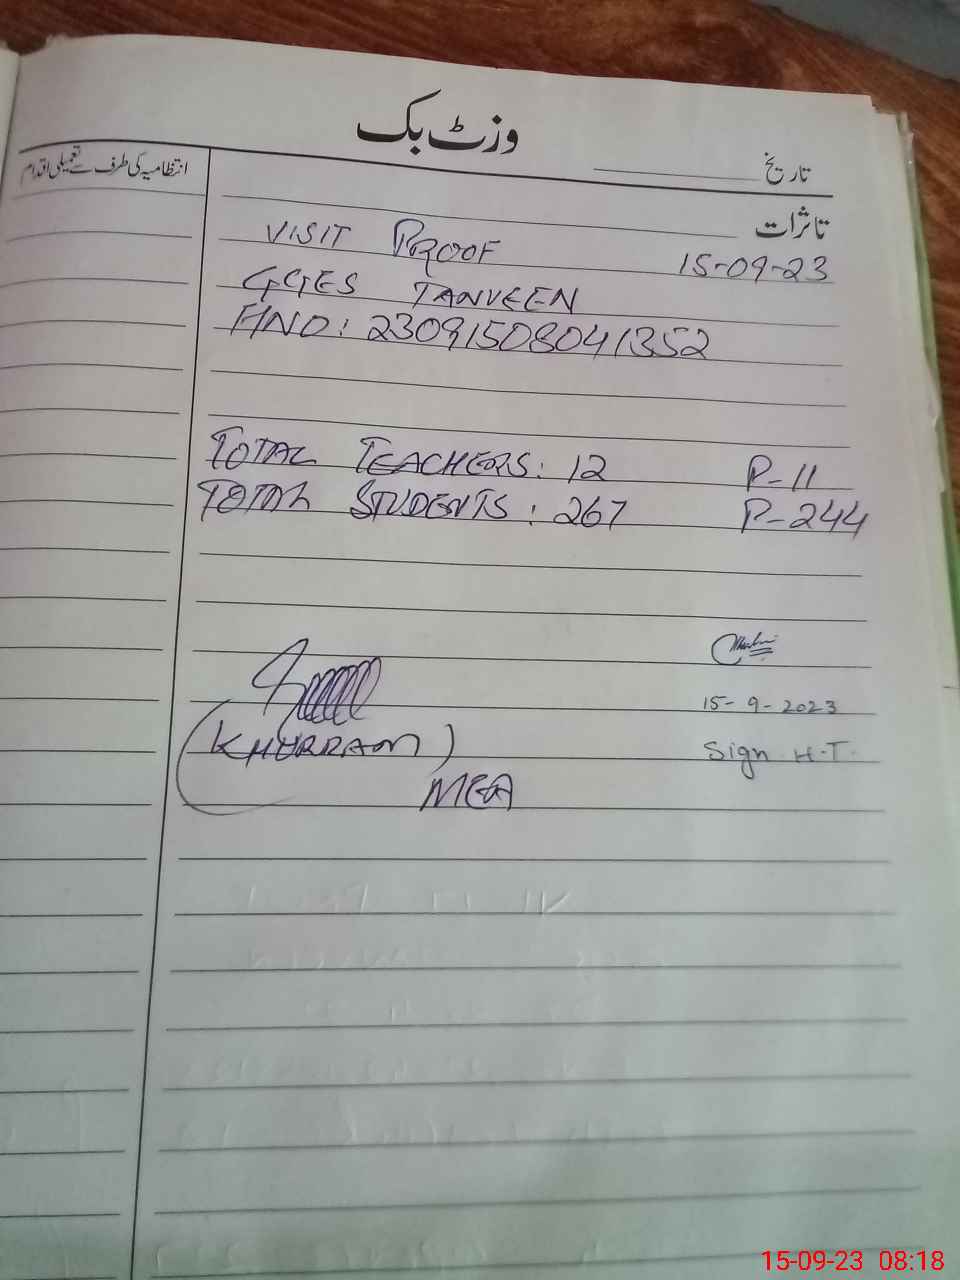 وزٹ بک
انتظامیہ کی طرف سے تعمیلی اقدام
تاریخ
تاثرات
VISIT PROOF 15-09-23
GGES TANVEEN
HNO: 23091508041352
TOTAL TEACHERS: 12 P-11
TOTAL STUDENTS: 267 P-244
15-9-2023
(KHURRAM) Sign H.T.
MEA
15-09-23 08:18